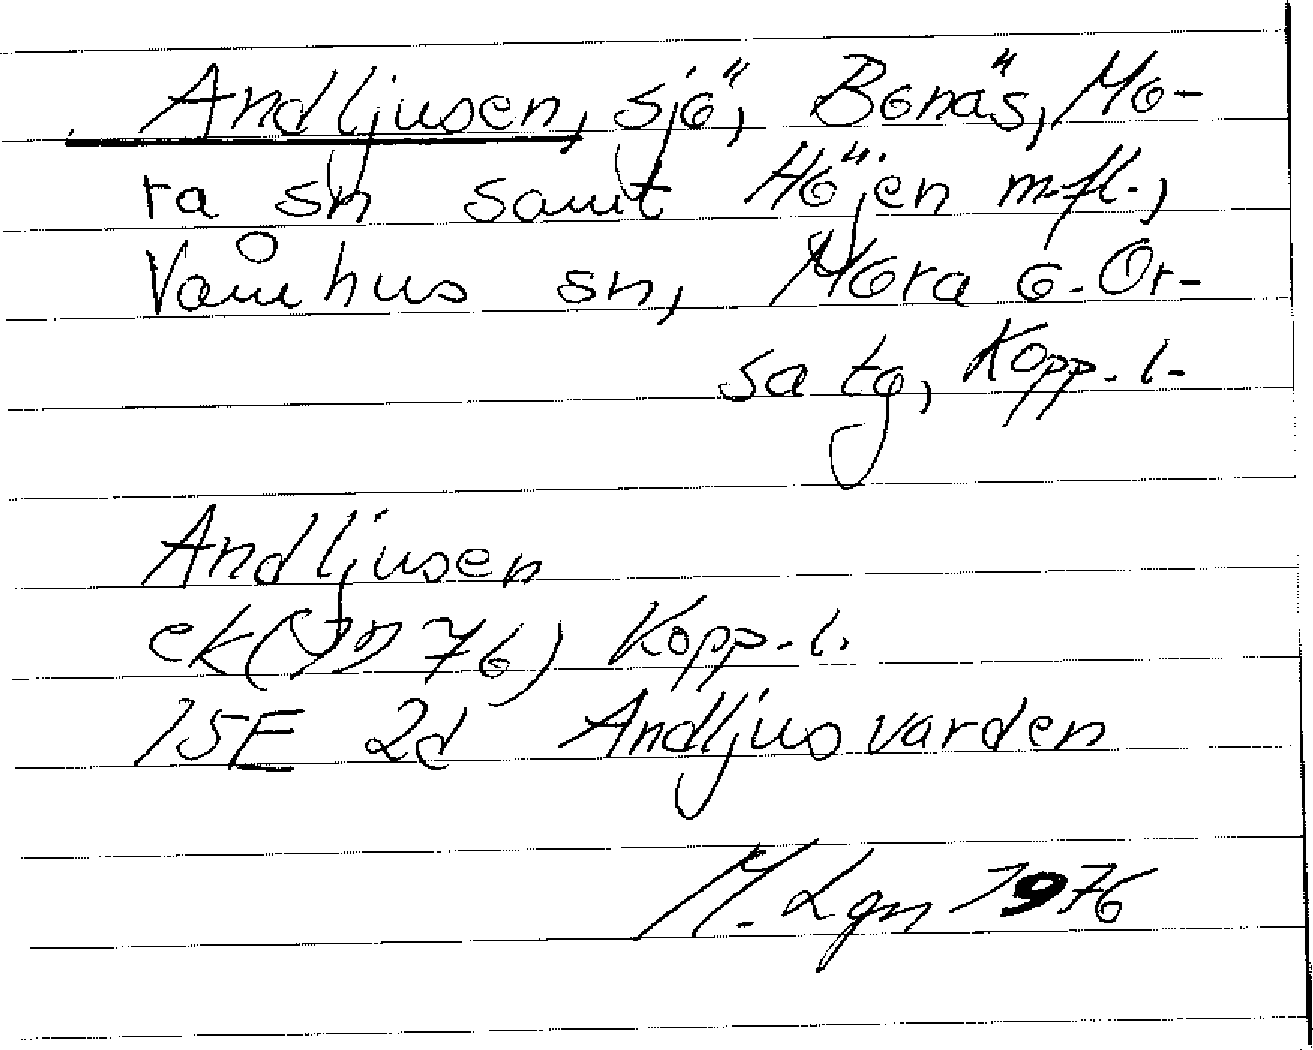 Andljusen, sjö, Bonäs, Mo-
ra sn samt Höjen m.fl.,
Våmhus sn, Mora o. Or-
sa tg, Kopp. l.
Andljusen
ek(1976) Kopp. l.
15E 2d Andljusvarden
M. Lgn 1976